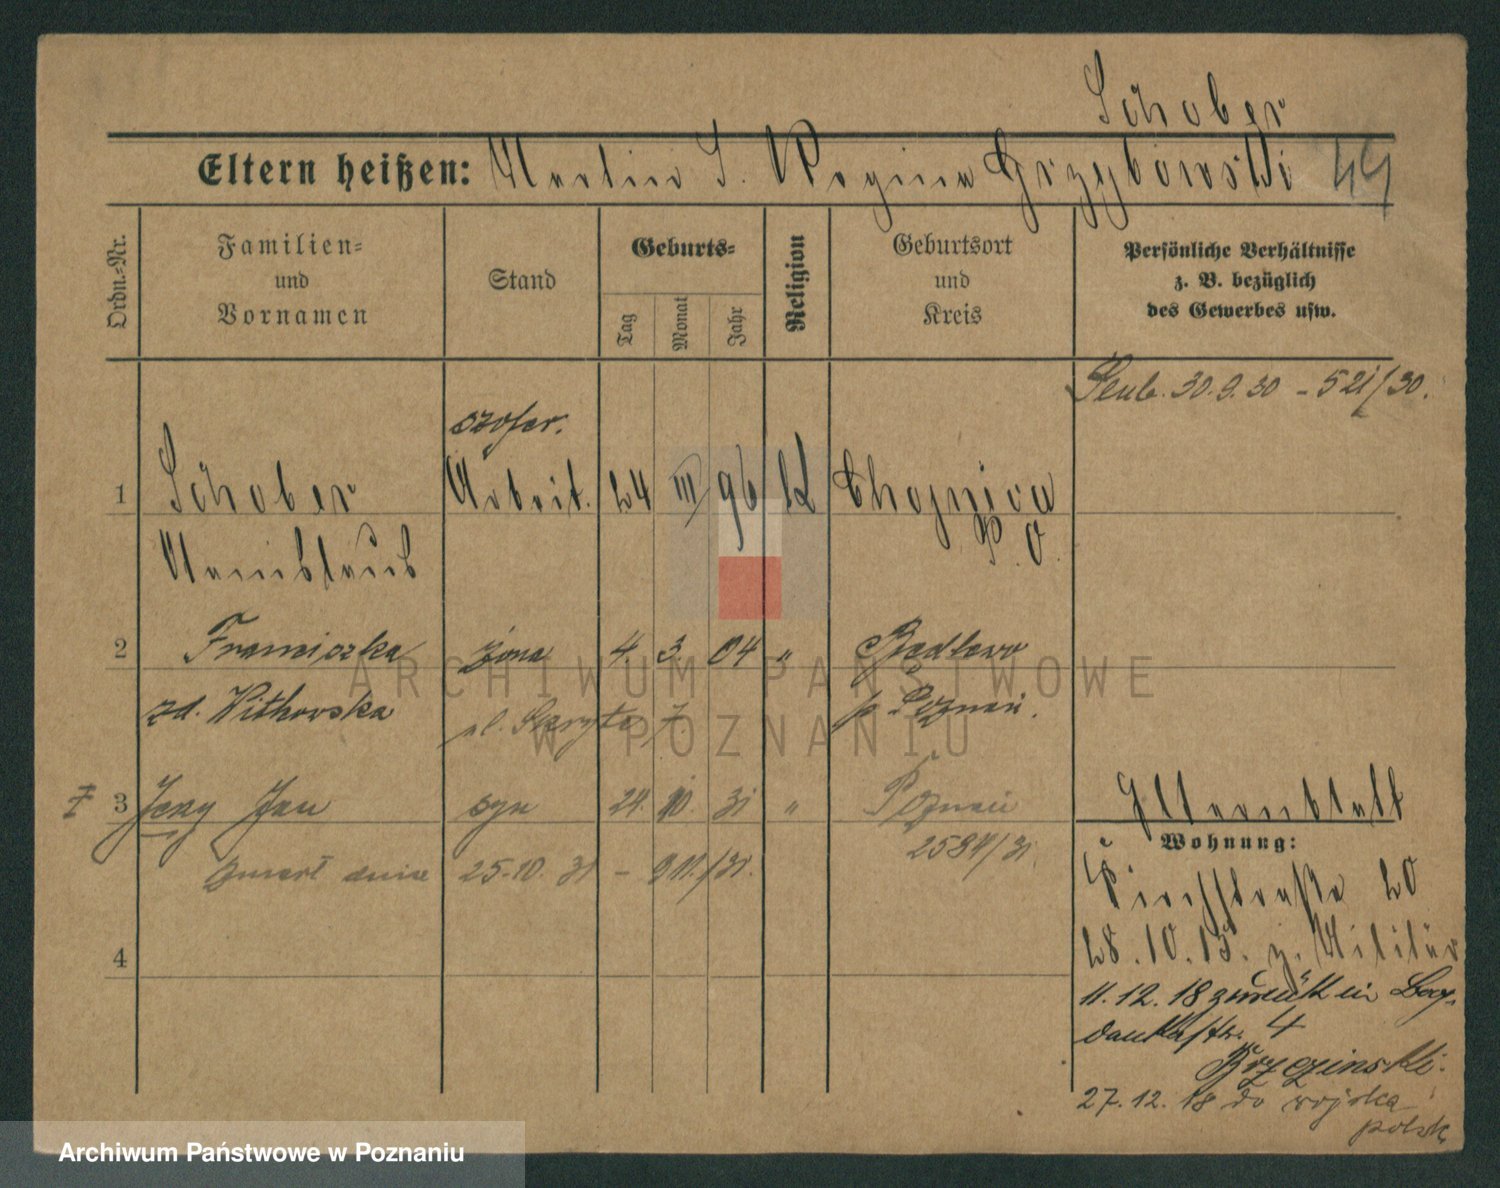 Schober
Eltern heißen: Martin S. Regina Grzybowski 44
Ordn.-Nr.
Familien-
und
Vornamen
Stand
Geburts-
Tag
Monat
Jahr
Religion
Geburtsort
und
Kreis
Persönliche Verhältnisse
z. B. bezüglich
des Gewerbes usw.
30.9.30 - 521/30.
szofer.
1 Schober Arbeit. 24 III 96 Chojnica
P. O.
Stanislaus
2 Franciszka żona 4. 3. 04 "
zd. Withowska p. Poznań.
3 Jerzy Jan syn 24. 10. 31 " Poznań
2584/31.
zmarł dnia 25.10.31 - 911/31.
Elternblatt
Wohnung:
20
28.10.15. z. Militär
11.12.18 zurück in Bog-
dankastr. 4
Brzezinski.
27.12.18 do wojska
polsk
4
ARCHIWUM PAŃSTWOWE
W POZNANIU
Archiwum Państwowe w Poznaniu